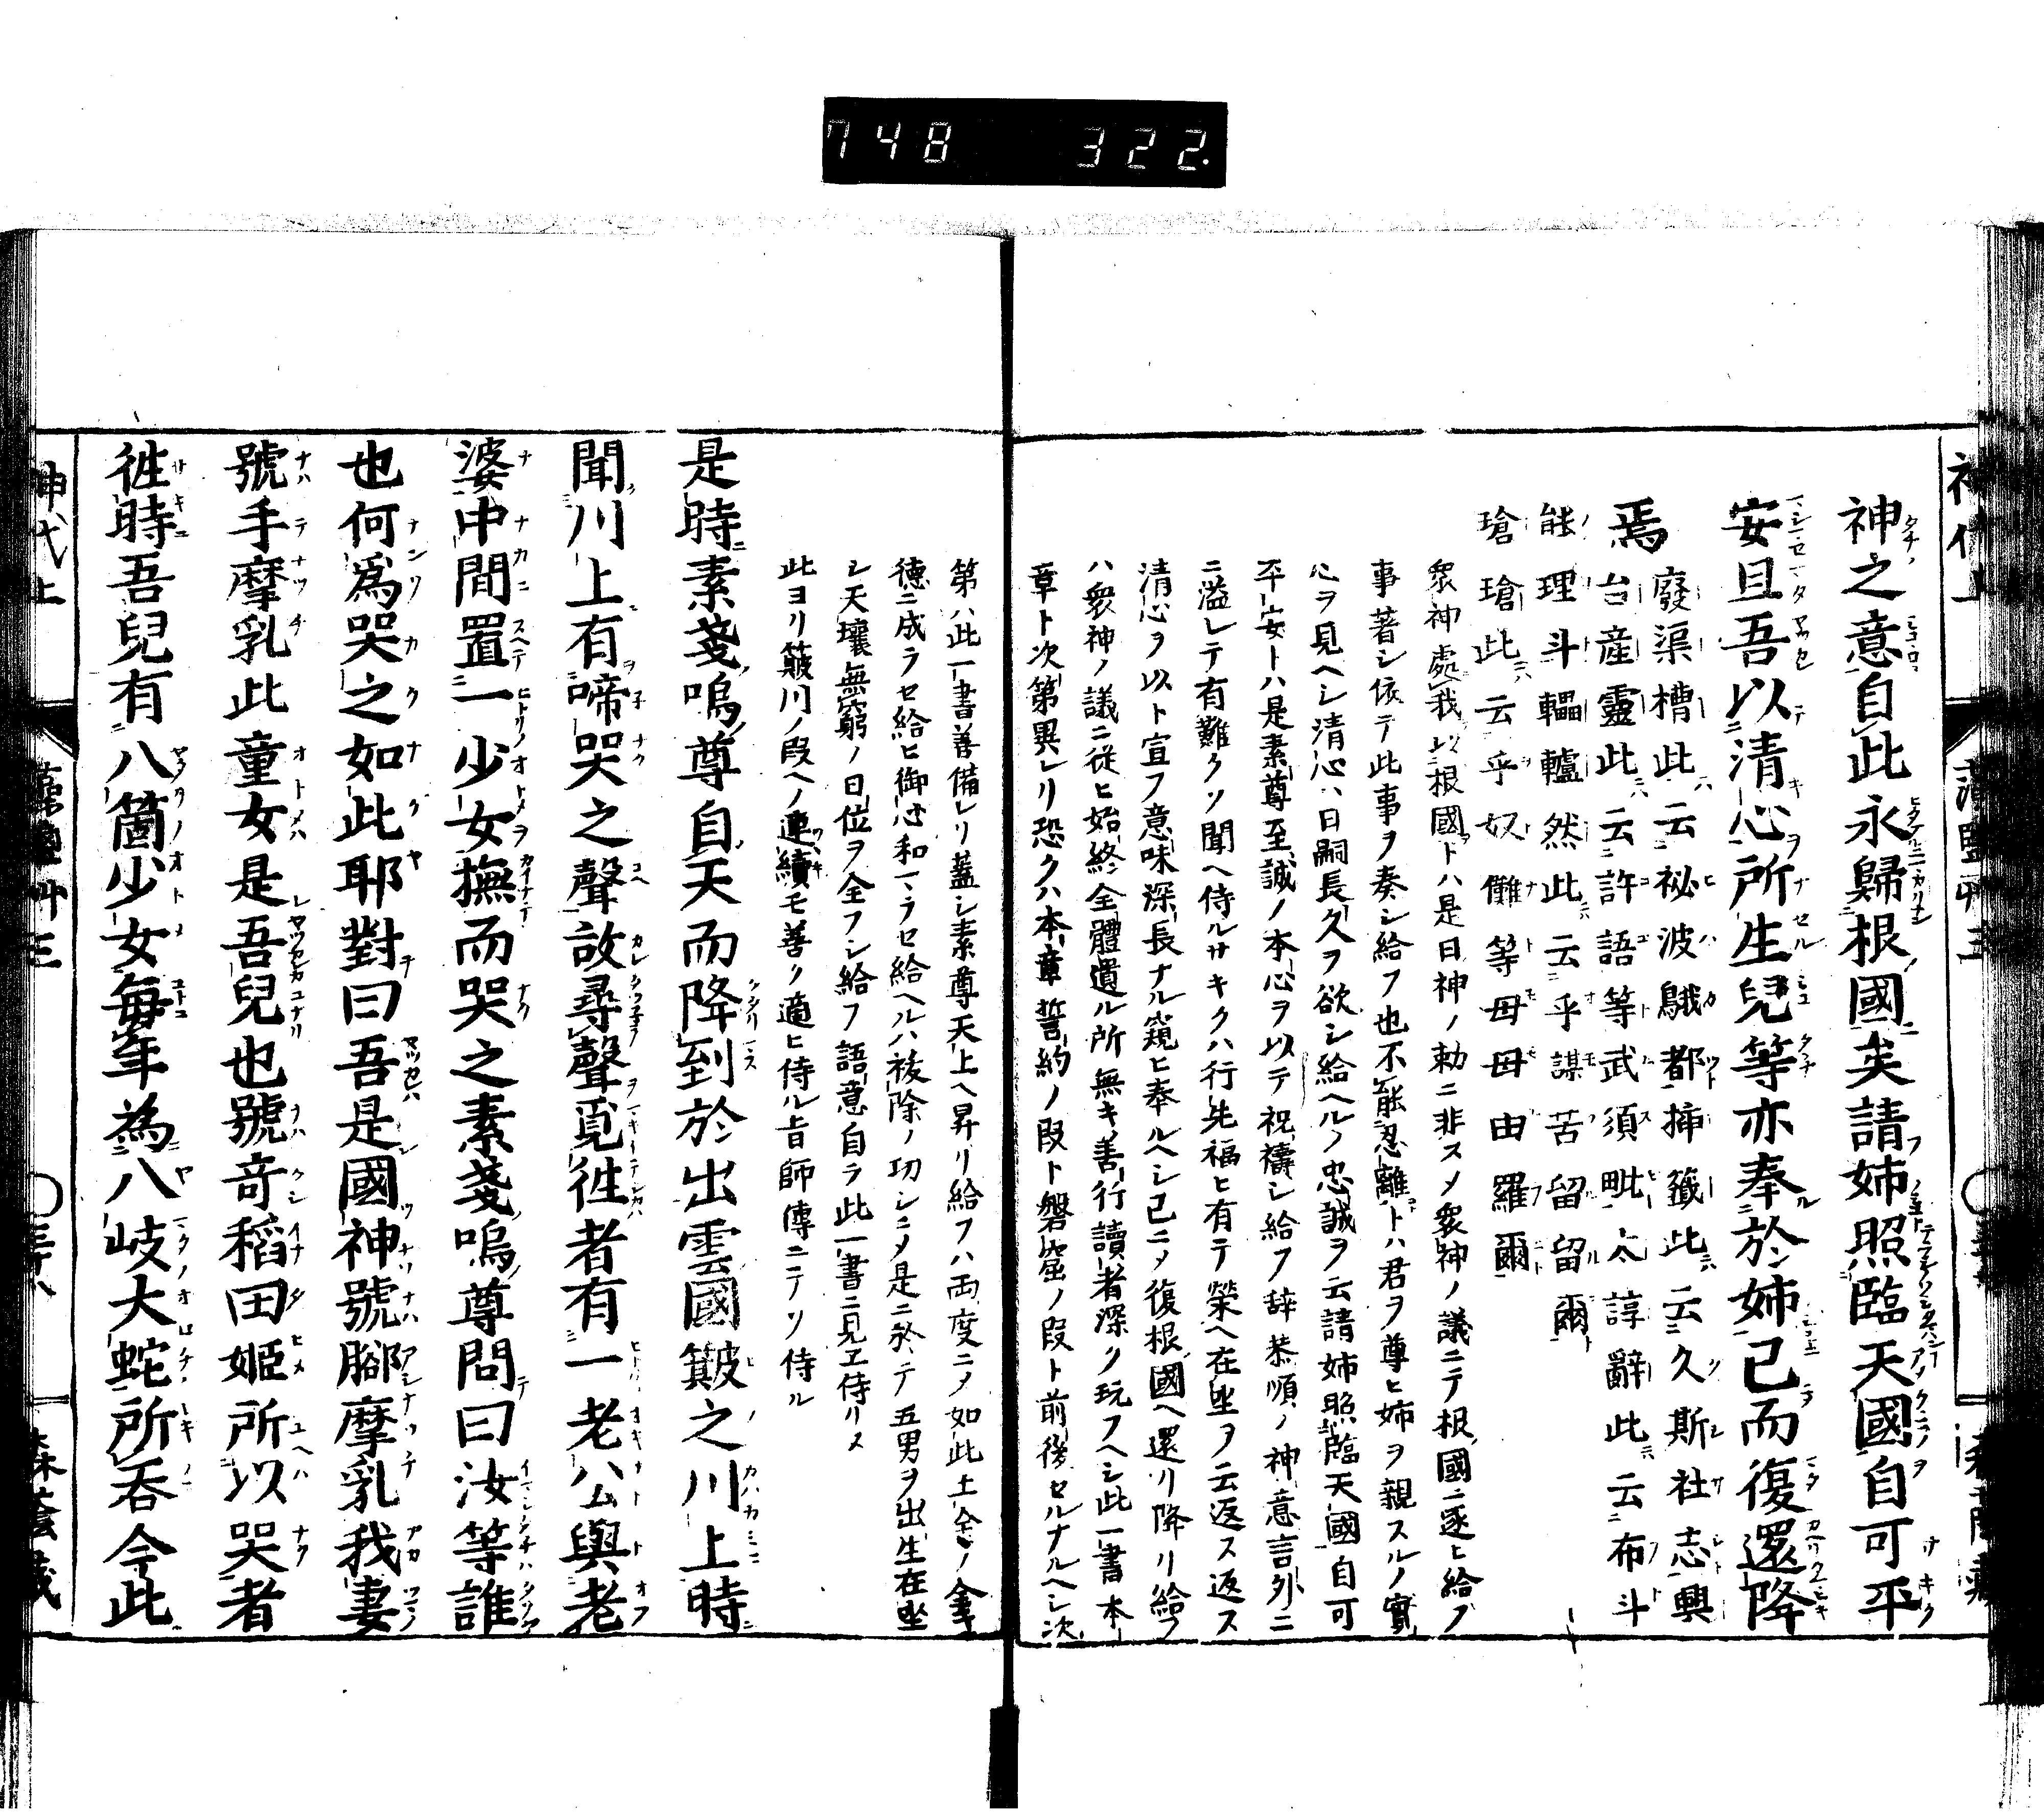 748 322.
神之意自此永歸根國矣請姉照臨天國自可平
安且吾以清心所生兒等亦奉於姉已而復還降
焉
廢渠槽此云祕波鵝都捶籤此云久斯社志興
台産靈此云許語等武須毗太諄辭此云布斗
能理斗轠轤然此云乎謀苦留留爾
瑲瑲此云乎奴儺等母母由羅爾
衆神處我以根國トハ是日神ノ勅ニ非スメ衆神ノ議ニテ根國ニ逐ヒ給フ
事著シ依テ此事ヲ奏シ給フ也不能忍離トハ君ヲ尊ヒ姉ヲ親スルノ實
心ヲ見ヘシ清心ハ日嗣長久ヲ欲シ給ヘルノ忠誠ヲ云請姉照臨天國自可
平安トハ是素尊至誠ノ本心ヲ以テ祝禱シ給フ辞恭順ノ神意言外ニ
ニ溢レテ有難クソ聞ヘ侍ルサキクハ行先福ヒ有テ榮ヘ在坐ヲ云返ス返ス
清心ヲ以ト宣フ意味深長ナル窺ヒ奉ルヘシ已ニメ復根國ヘ還リ降リ給フ
ハ衆神ノ議ニ從ヒ始終全體遺ル所無キ善行讀者深ク玩フヘシ此一書本
章ト次第異レリ恐クハ本章誓約ノ段ト磐窟ノ段ト前後セルナルヘシ次
第ハ此一書善備レリ蓋シ素尊天上ヘ昇リ給フハ両度ニメ如此土金ノ全
德ニ成ラセ給ヒ御心和ラセ給ヘルハ祓除ノ功シニメ是ニ於テ五男ヲ出生在坐
シ天壤無窮ノ日位ヲ全フシ給フ語意自ラ此一書ニ見エ侍リヌ
此ヨリ簸川ノ段ヘノ連續モ善ク適ヒ侍ル旨師傳ニテソ侍ル
是時素戔嗚尊自天而降到於出雲國簸之川上時
聞川上有啼哭之聲故尋聲覓徃者有一老公與老
婆中間置一少女撫而哭之素戔嗚尊問曰汝等誰
也何爲哭之如此耶對曰吾是國神號脚摩乳我妻
號手摩乳此童女是吾兒也號奇稻田姬所以哭者
徃時吾兒有八箇少女毎年為八岐大蛇所呑今此
神代上
三十八